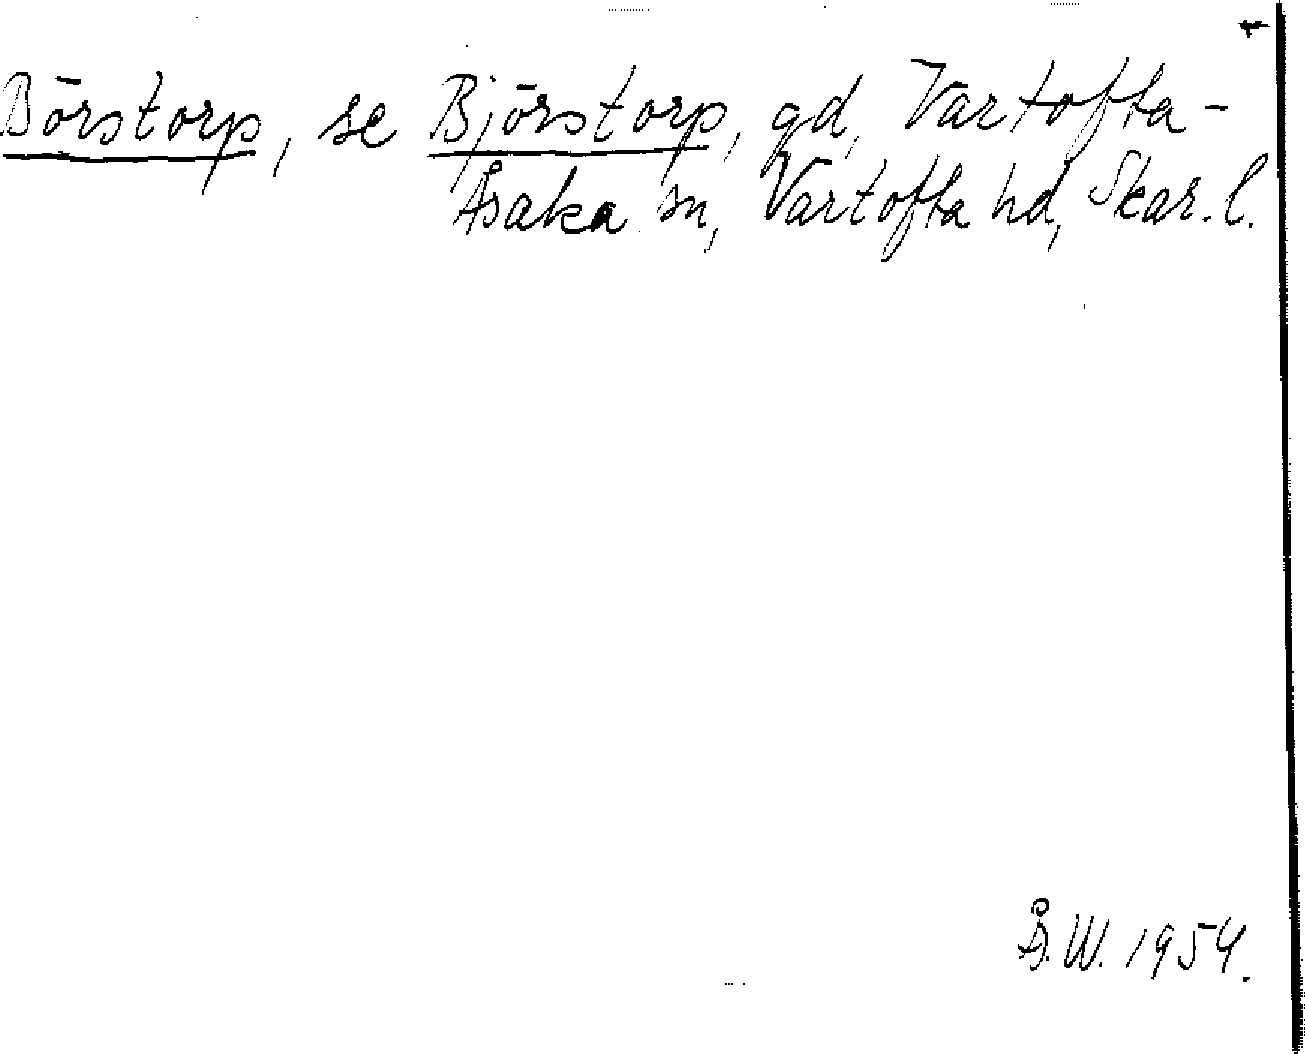 Börstorp, se Björstorp, gd, Vartofta-
Åsaka sn, Vartofta hd, Skar. l.
Å. W. 1954.